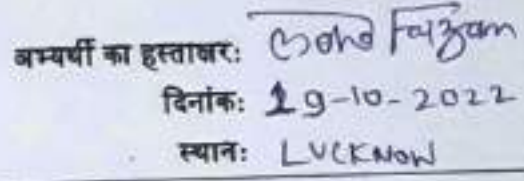 अभ्यर्थी का हस्ताक्षर: Mohd Faizam
दिनांक: 19-10-2022
स्थान: LUCKNOW